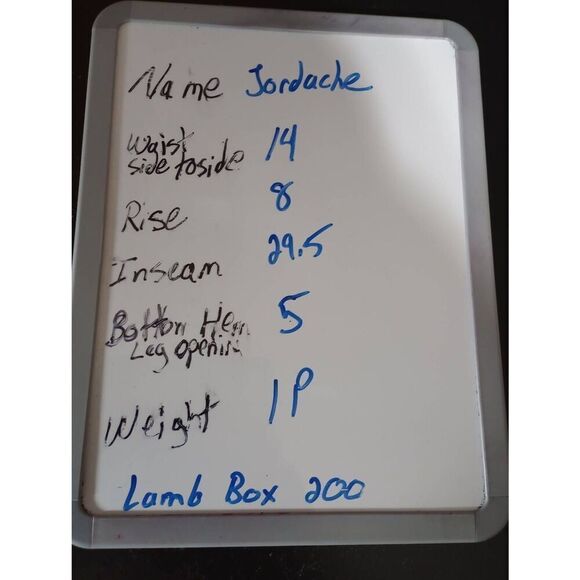 Name Jordache
Waist
side to side 14
Rise 8
Inseam 29.5
Bottom Hem
Leg opening 5
Weight 1P
Lamb Box 200